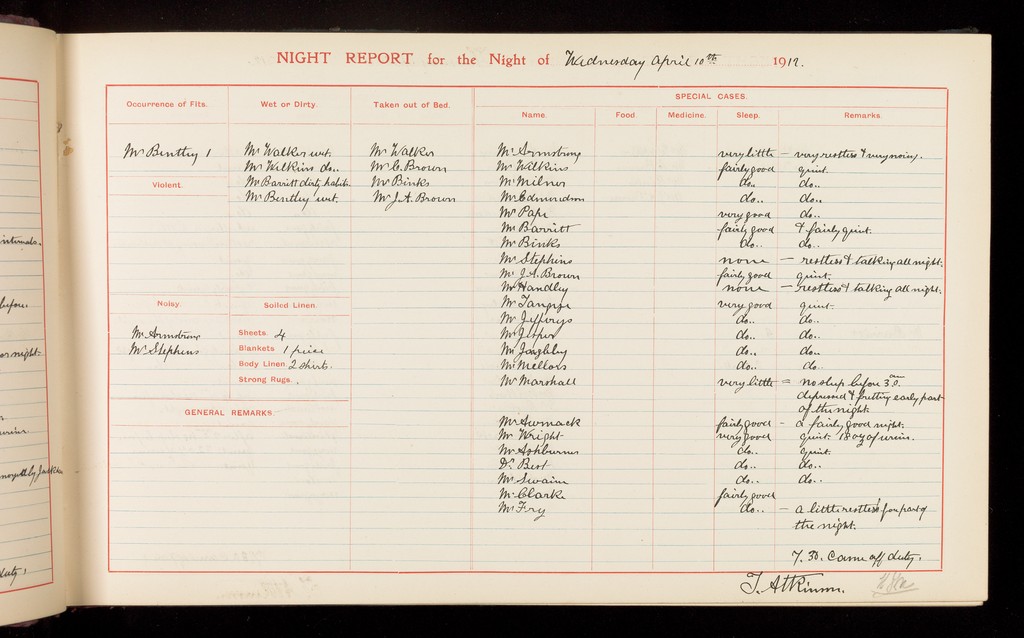 NIGHT REPORT for the Night of Wednesday April 10th 1912.
Occurrence of Fits.
Mr Bentley 1
Violent.
Noisy.
Mr Armstrong
Mr Stephens
GENERAL REMARKS.
Wet or Dirty.
Mr Walker wet.
Mr Wilkins do..
Mr Barritt dirty habits
Mr Bentley wet.
Soiled Linen.
Sheets. 4
Blankets 1 piece
Body Linen 2 shirts.
Strong Rugs.
Taken out of Bed.
Mr Walker
Mr C. Brown
Mr Binks
Mr J.A. Brown
SPECIAL CASES.
Name. Food. Medicine. Sleep. Remarks.
Mr Armstrong very little very restless & very noisy.
Mr Wilkins fairly good quiet.
Mr Milner do.. do..
Mr Edmundson do.. do..
Mr Pape very good do..
Mr Barritt fairly good & fairly quiet.
Mr Binks do.. do..
Mr Stephens none – restless & talking all night.
Mr J.A. Brown fairly good quiet.
Mr Handley none – restless & talking all night.
Mr Tangye very good quiet.
Mr Jefferys do.. do..
Mr Jesper do.. do..
Mr do.. do..
Mr Mellors do.. do
Mr Marshall very little = no sleep before 3.0. am
depressed & fretting early part
of the night.
Mr fairly good – a fairly good night.
Mr Wright very good quiet. 18 oz of urin.
Mr Ashburner do.. quiet.
Dr Best do.. do..
Mr Swaine do.. do..
Mr Clarke fairly good
Mr Fry do.. – a little restless for part of
the night.
7.30. Came off duty.
T. Atkinson.
internals.
before.
night
by Jackson
duty,